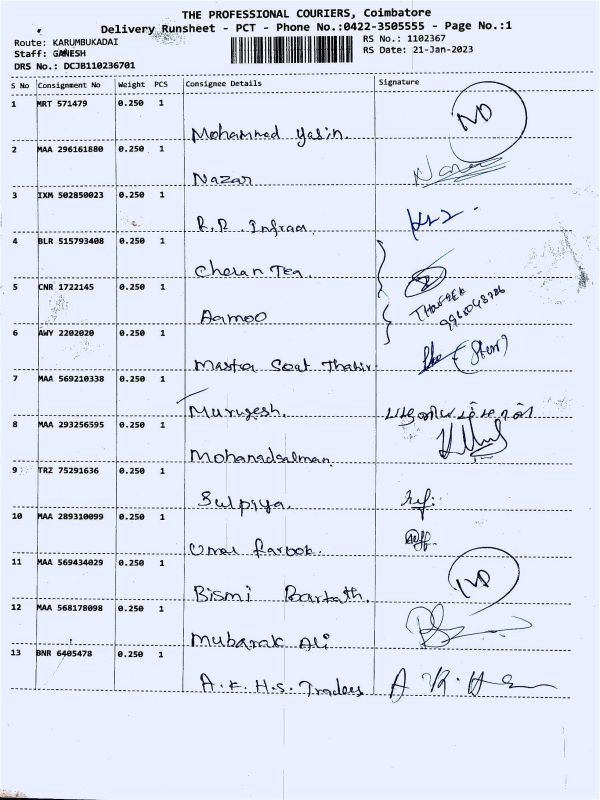 THE PROFESSIONAL COURIERS, Coimbatore
Delivery Runsheet - PCT - Phone No.:0422-3505555 - Page No.:1
Route: KARUMBUKADAI
RS No.: 1102367
Staff: GANESH
RS Date: 21-Jan-2023
DRS No.: DCJB110236701
S No Consignment No Weight PCS Consignee Details Signature
1 MRT 571479 0.250 1 Mohammad Yasin. ND
2 MAA 296161880 0.250 1 Nazar
3 IXM 502850023 0.250 1 R.R. Infraa.
4 BLR 515793408 0.250 1 Cheran Tea.
5 CNR 1722145 0.250 1 Aamoo THOUFEEK
6 AWY 2202020 0.250 1 Master Seat Thahir
7 MAA 569210338 0.250 1 Murugesh.
8 MAA 293256595 0.250 1 Mohanadsalman.
9 TRZ 75291636 0.250 1 Sulpiya.
10 MAA 289310099 0.250 1 Umar Farook.
11 MAA 569434029 0.250 1 Bismi Barkath. ND
12 MAA 568178098 0.250 1 Mubarak Ali
13 BNR 6405478 0.250 1 A.K.H.S. Traders